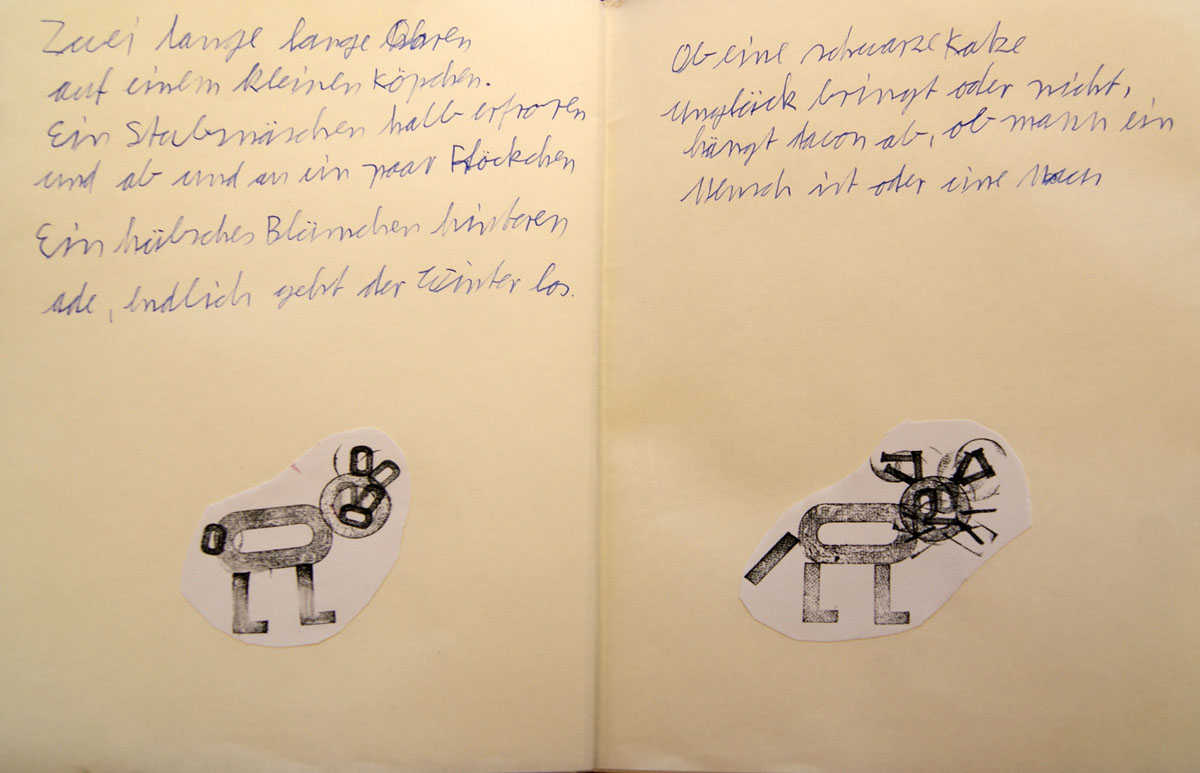 Zwei lange lange Ohren
auf einem kleinen Köpchen.
Ein Stubsnäschen halb erfroren
und ab und an ein paar Flöckchen
Ein hübsches Blümchen hinteren
ade, endlich geht der Winter los.
Ob eine schwarze Katze
unglück bringt oder nicht,
hängt davon ab, ob mann ein
Mensch ist oder eine